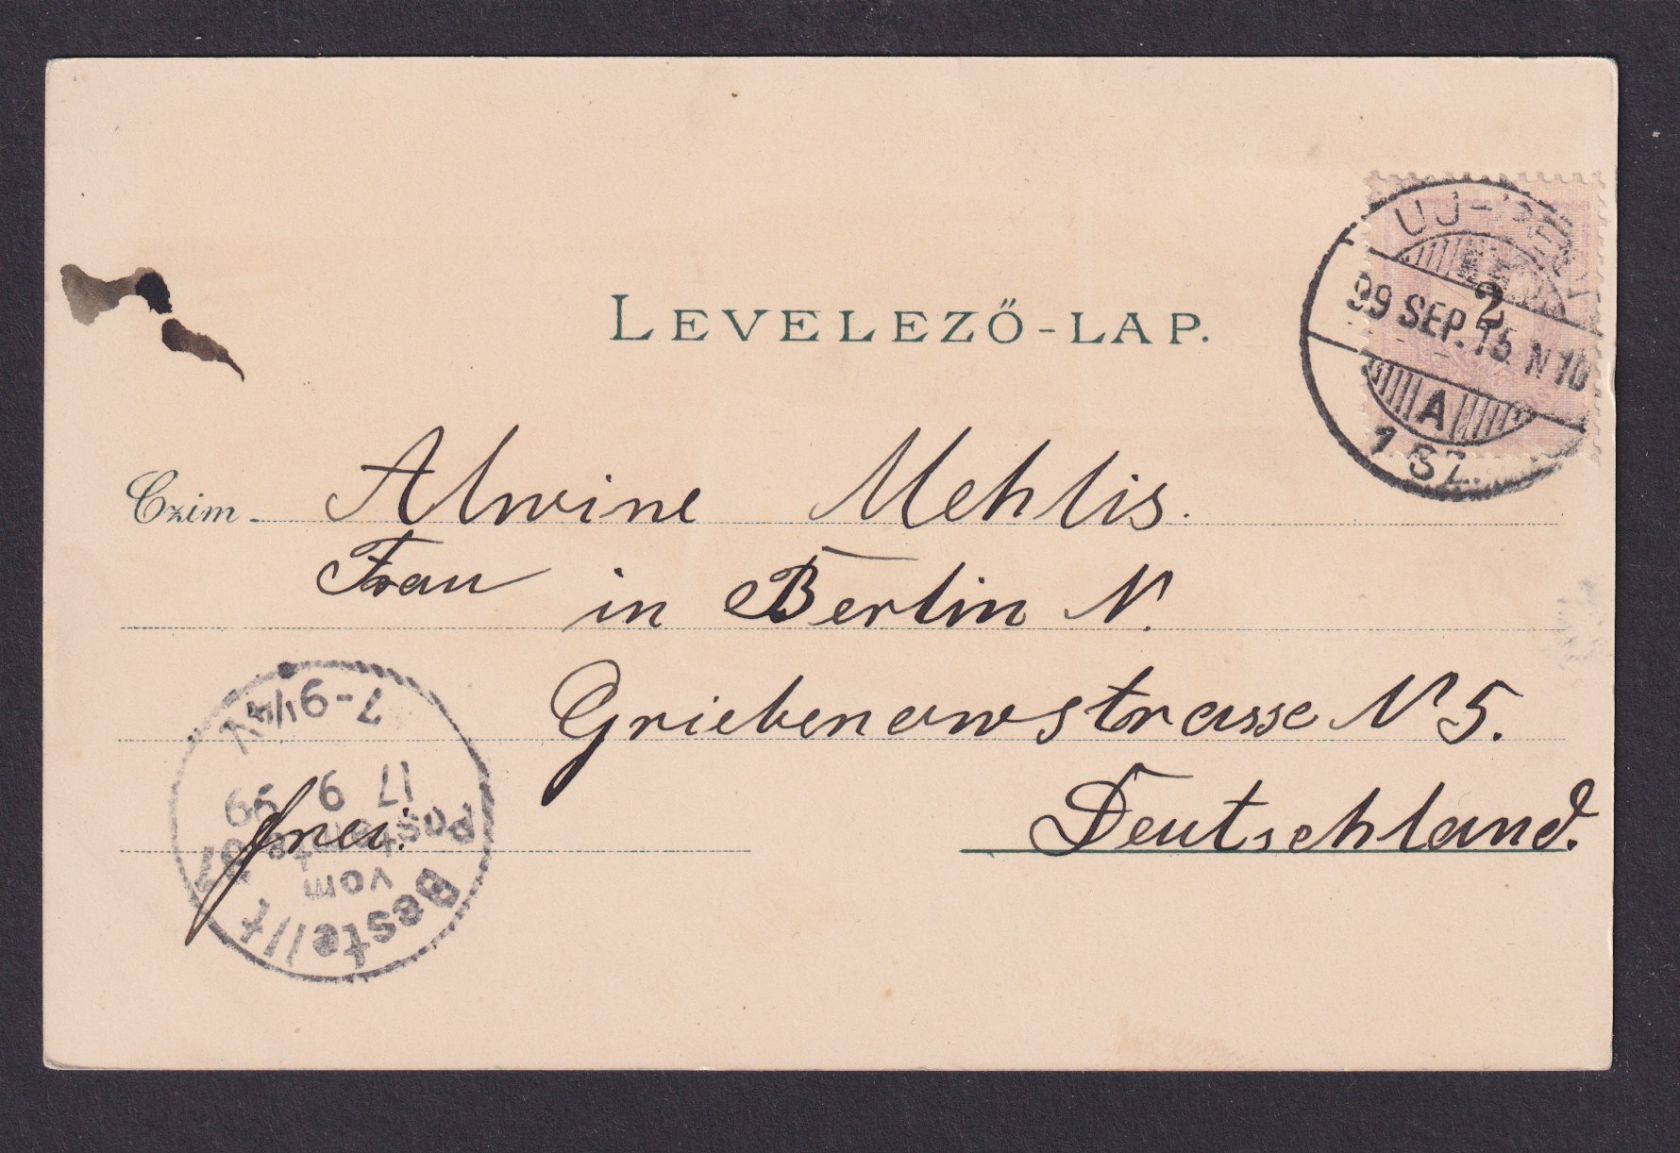 LEVELEZŐ-LAP.
UJ-PE
2
99 SEP. 15 N 10
A
1 SZ.
Czim Alwine Mehlis.
Frau in Berlin N.
Griebenowstrasse N 5.
Deutschland.
frei.
Bestellt
vom
Postamte
37
17 9 99
7-9¼V